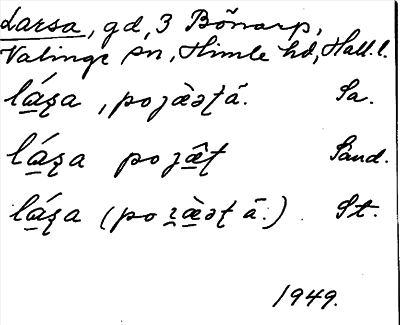 Larsa, gd, 3 Bönarp,
Valinge sn, Himle hd, Hall. l.
lá̱ʂa, poʒæ̀əʈā. Sa.
lá̱ʂa poʒæ̂ʈ Sand.
lá̱ʂa (poʒæ̱̀əʈ ā.) St.
1949.